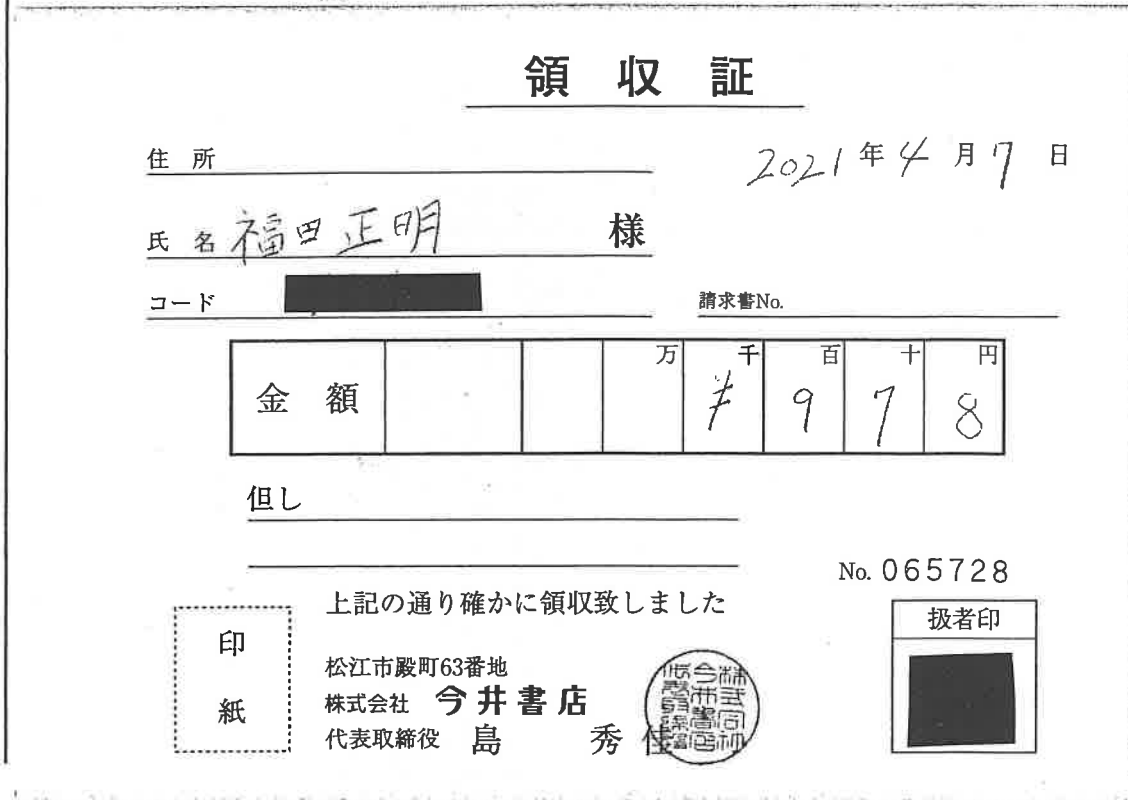 領収証
住所
2021年4月7日
氏名 福田正明 様
コード
請求書No.
金額 万 千 百 十 円
¥ 9 7 8
但し
No. 065728
上記の通り確かに領収致しました
扱者印
印紙
松江市殿町63番地
株式会社 今井書店
代表取締役 島 秀佳